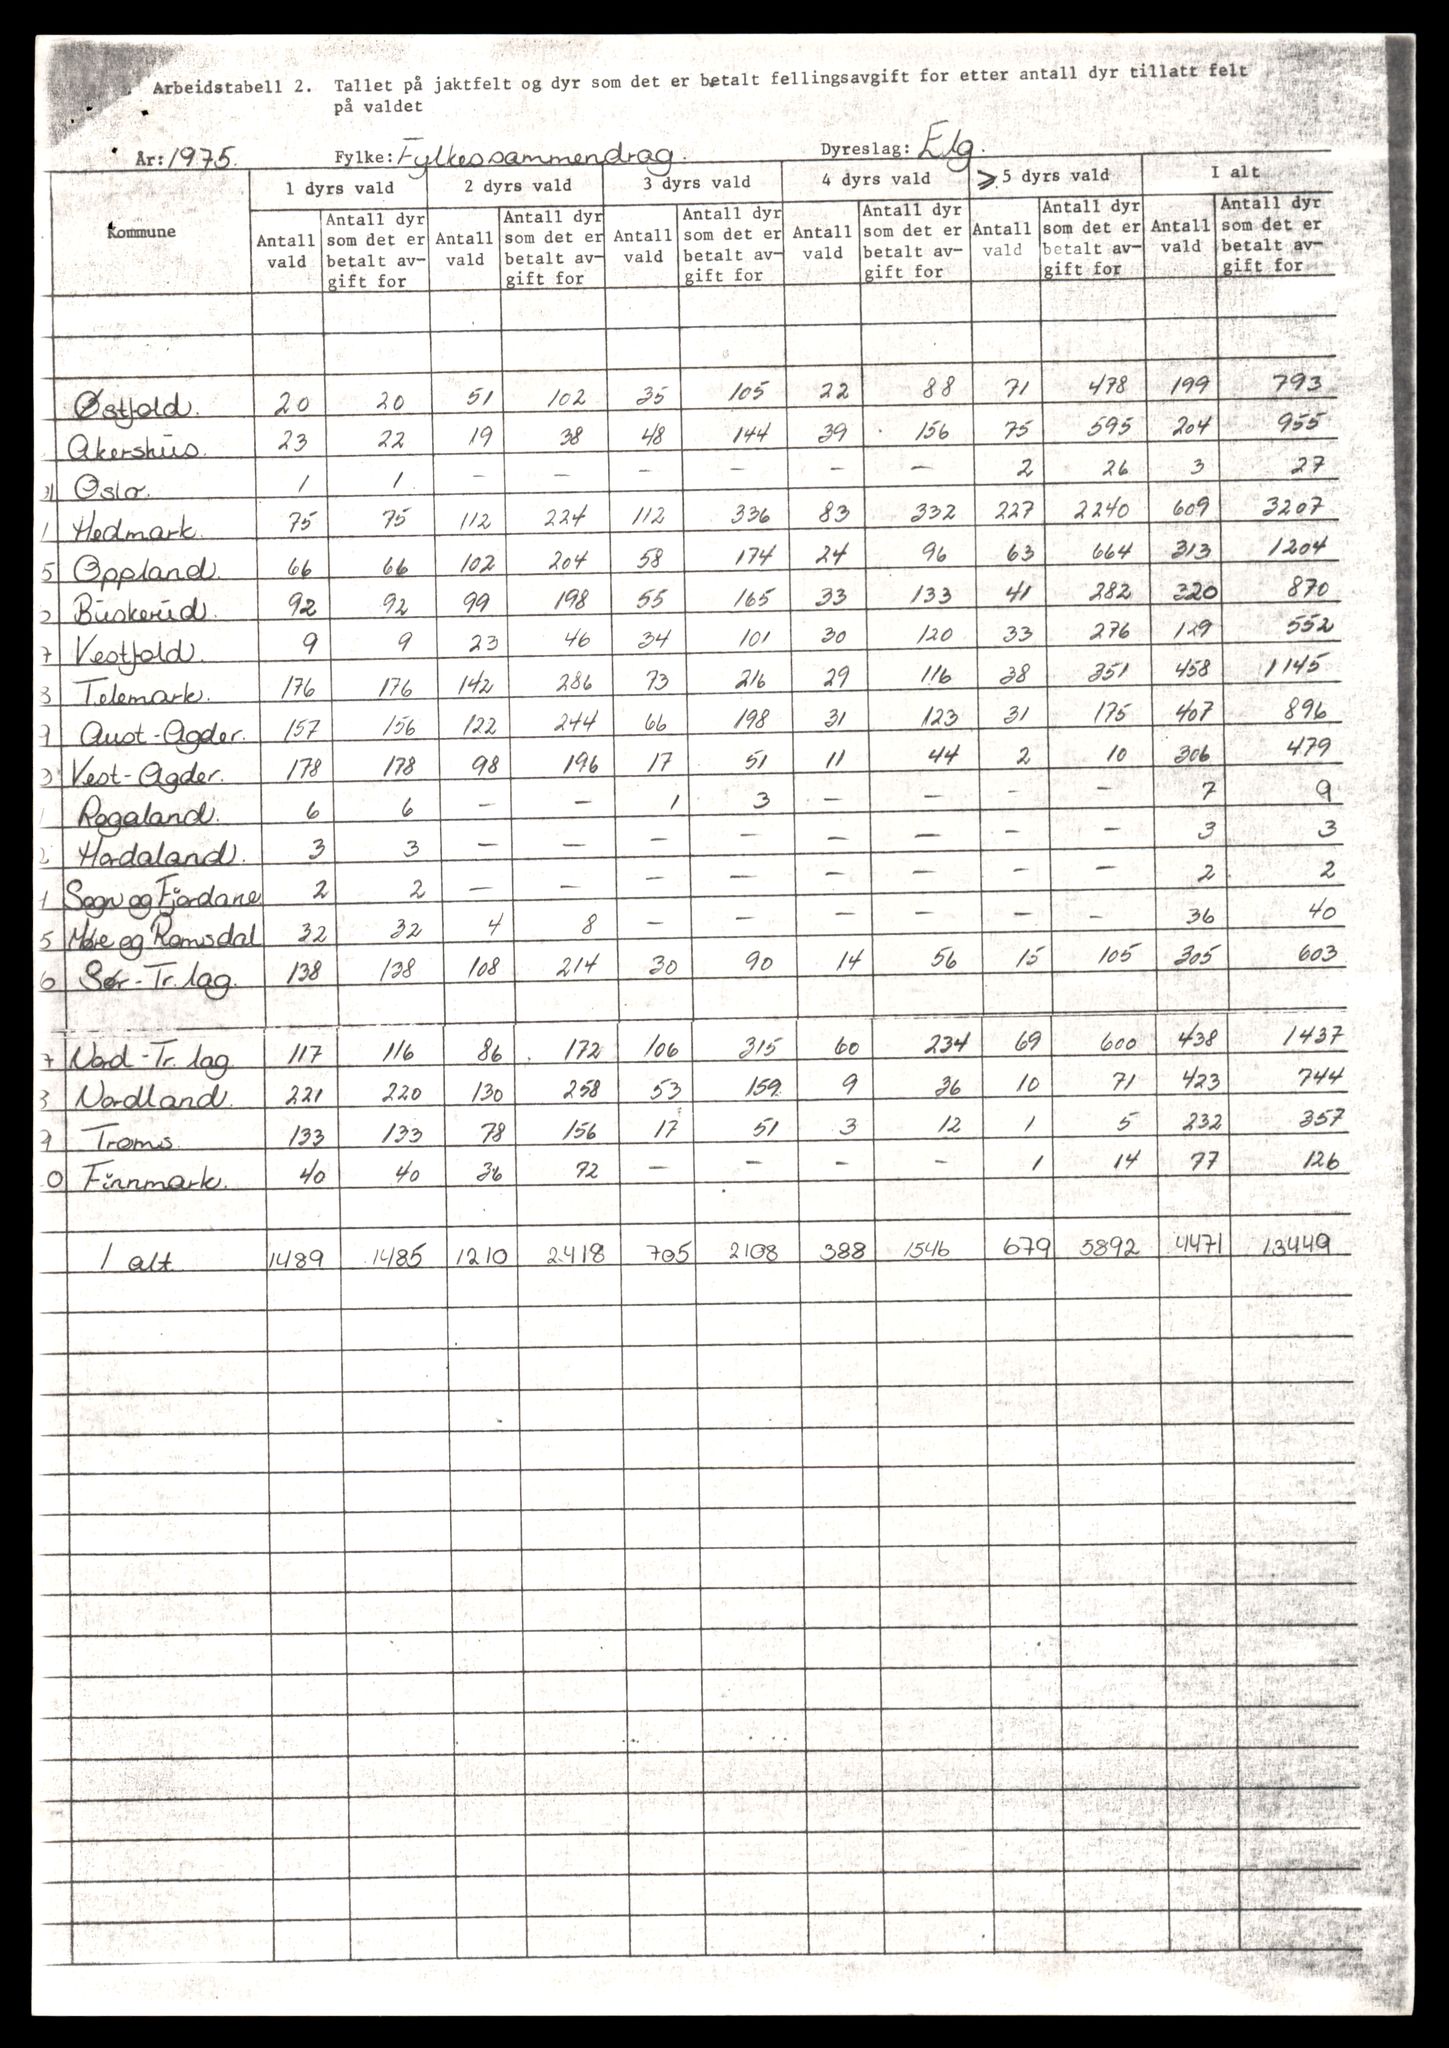 Arbeidstabell 2. Tallet på jaktfelt og dyr som det er betalt fellingsavgift for etter antall dyr tillatt felt
på valdet
År: 1975. Fylke: Fylkessammendrag. Dyreslag: Elg.
Kommune 1 dyrs vald 2 dyrs vald 3 dyrs vald 4 dyrs vald ≥ 5 dyrs vald I alt
Antall vald Antall dyr som det er betalt av-gift for Antall vald Antall dyr som det er betalt av-gift for Antall vald Antall dyr som det er betalt av-gift for Antall vald Antall dyr som det er betalt av-gift for Antall vald Antall dyr som det er betalt av-gift for Antall vald Antall dyr som det er betalt av-gift for
Østfold. 20 20 51 102 35 105 22 88 71 478 199 793
Akershus. 23 22 19 38 48 144 39 156 75 595 204 955
Oslo. 1 1 – – – – – – 2 26 3 27
1 Hedmark. 75 75 112 224 112 336 83 332 227 2240 609 3207
5 Oppland. 66 66 102 204 58 174 24 96 63 664 313 1204
2 Buskerud. 92 92 99 198 55 165 33 133 41 282 320 870
7 Vestfold. 9 9 23 46 34 101 30 120 33 276 129 552
3 Telemark. 176 176 142 286 73 216 29 116 38 351 458 1145
9 Aust-Agder. 157 156 122 244 66 198 31 123 31 175 407 896
Vest-Agder. 178 178 98 196 17 51 11 44 2 10 306 479
Rogaland. 6 6 – – 1 3 – – – – 7 9
2 Hordaland. 3 3 – – – – – – – – 3 3
1 Sogn og Fjordane 2 2 – – – – – – – – 2 2
5 Møre og Romsdal 32 32 4 8 – – – – – – 36 40
6 Sør-Tr.lag. 138 138 108 214 30 90 14 56 15 105 305 603
7 Nord-Tr.lag 117 116 86 172 106 315 60 234 69 600 438 1437
3 Nordland. 221 220 130 258 53 159 9 36 10 71 423 744
9 Troms. 133 133 78 156 17 51 3 12 1 5 232 357
0 Finnmark. 40 40 36 72 – – – – 1 14 77 126
I alt 1489 1485 1210 2418 705 2108 388 1546 679 5892 4471 13449